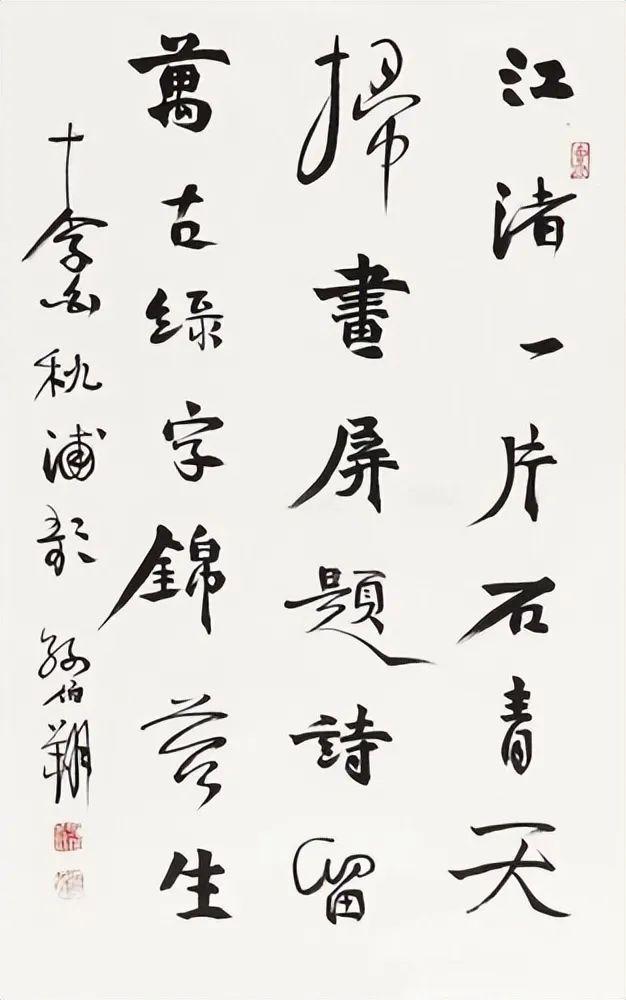 江渚一片石青天
掃畫屏題詩留
萬古綠字錦苔生
十李白秋浦歌 孫伯翔